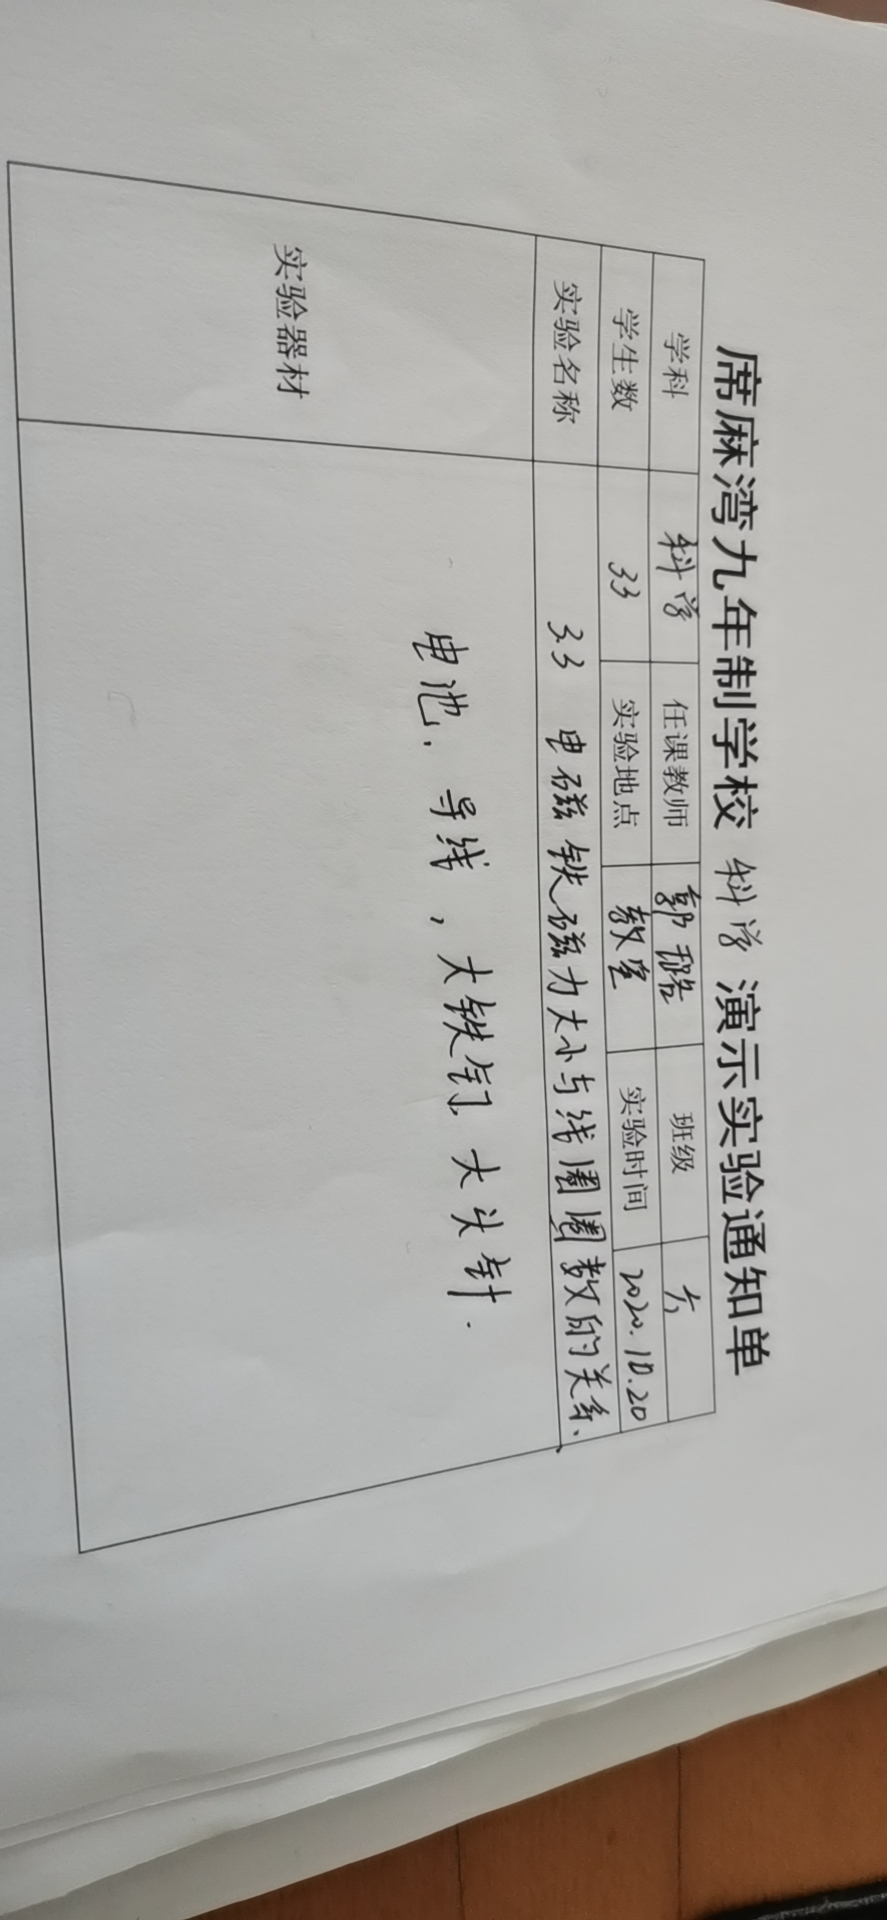 席麻湾九年制学校 科学 演示实验通知单
学科 科学 任课教师 郭璐 班级 六
学生数 33 实验地点 教室 实验时间 2020.10.20
实验名称 3.3 电磁铁磁力大小与线圈圈数的关系、
实验器材 电池、导线，大铁钉、大头针.